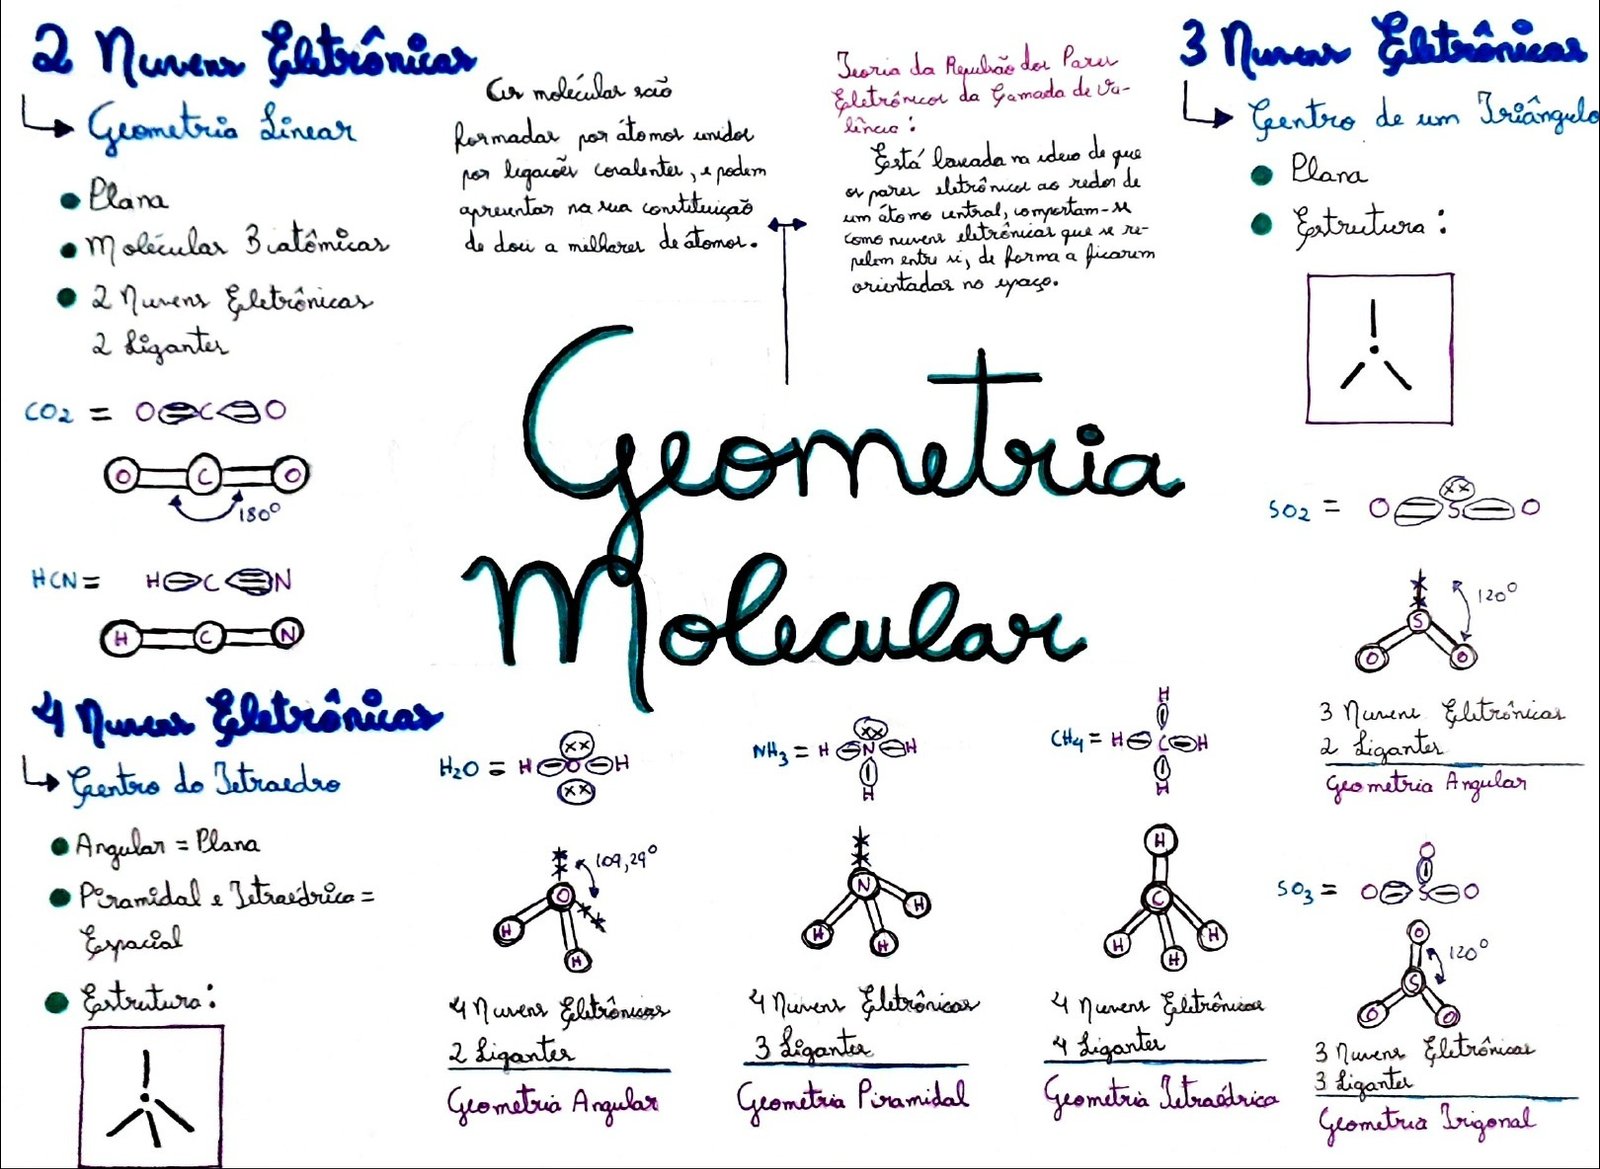 2 Nuvens Eletrônicas
Geometria Linear
Plana
Moléculas 3 iatômicas
2 Nuvens Eletrônicas
2 Ligantes
CO2 = O C O
O C O
180°
HCN = H C N
H C N
As moléculas são
formadas por átomos unidos
por ligações covalentes, e podem
apresentar na sua constituição
de dois a milhares de átomos.
Teoria da Repulsão dos Pares
Eletrônicos da Camada de Va-
lência:
Está baseada na ideia de que
os pares eletrônicos ao redor de
um átomo central, comportam-se
como nuvens eletrônicas que se re-
pelem entre si, de forma a ficarem
orientadas no espaço.
Geometria
Molecular
3 Nuvens Eletrônicas
Centro de um Triângulo
Plana
Estrutura:
SO2 = O xx S O
120°
S
O O
3 Nuvens Eletrônicas
2 Ligantes
Geometria Angular
SO3 = O S O
O
O
120°
S
O O
3 Nuvens Eletrônicas
3 Ligantes
Geometria Trigonal
4 Nuvens Eletrônicas
Centro do Tetraedro
Angular = Plana
Piramidal e Tetraédrica =
Espacial
Estrutura:
H2O = H xx O xx H
109,29°
O
H
H
4 Nuvens Eletrônicas
2 Ligantes
Geometria Angular
NH3 = H xx N H
H
N
H H H
4 Nuvens Eletrônicas
3 Ligantes
Geometria Piramidal
H
CH4 = H C H
H
H
C
H H H
4 Nuvens Eletrônicas
4 Ligantes
Geometria Tetraédrica